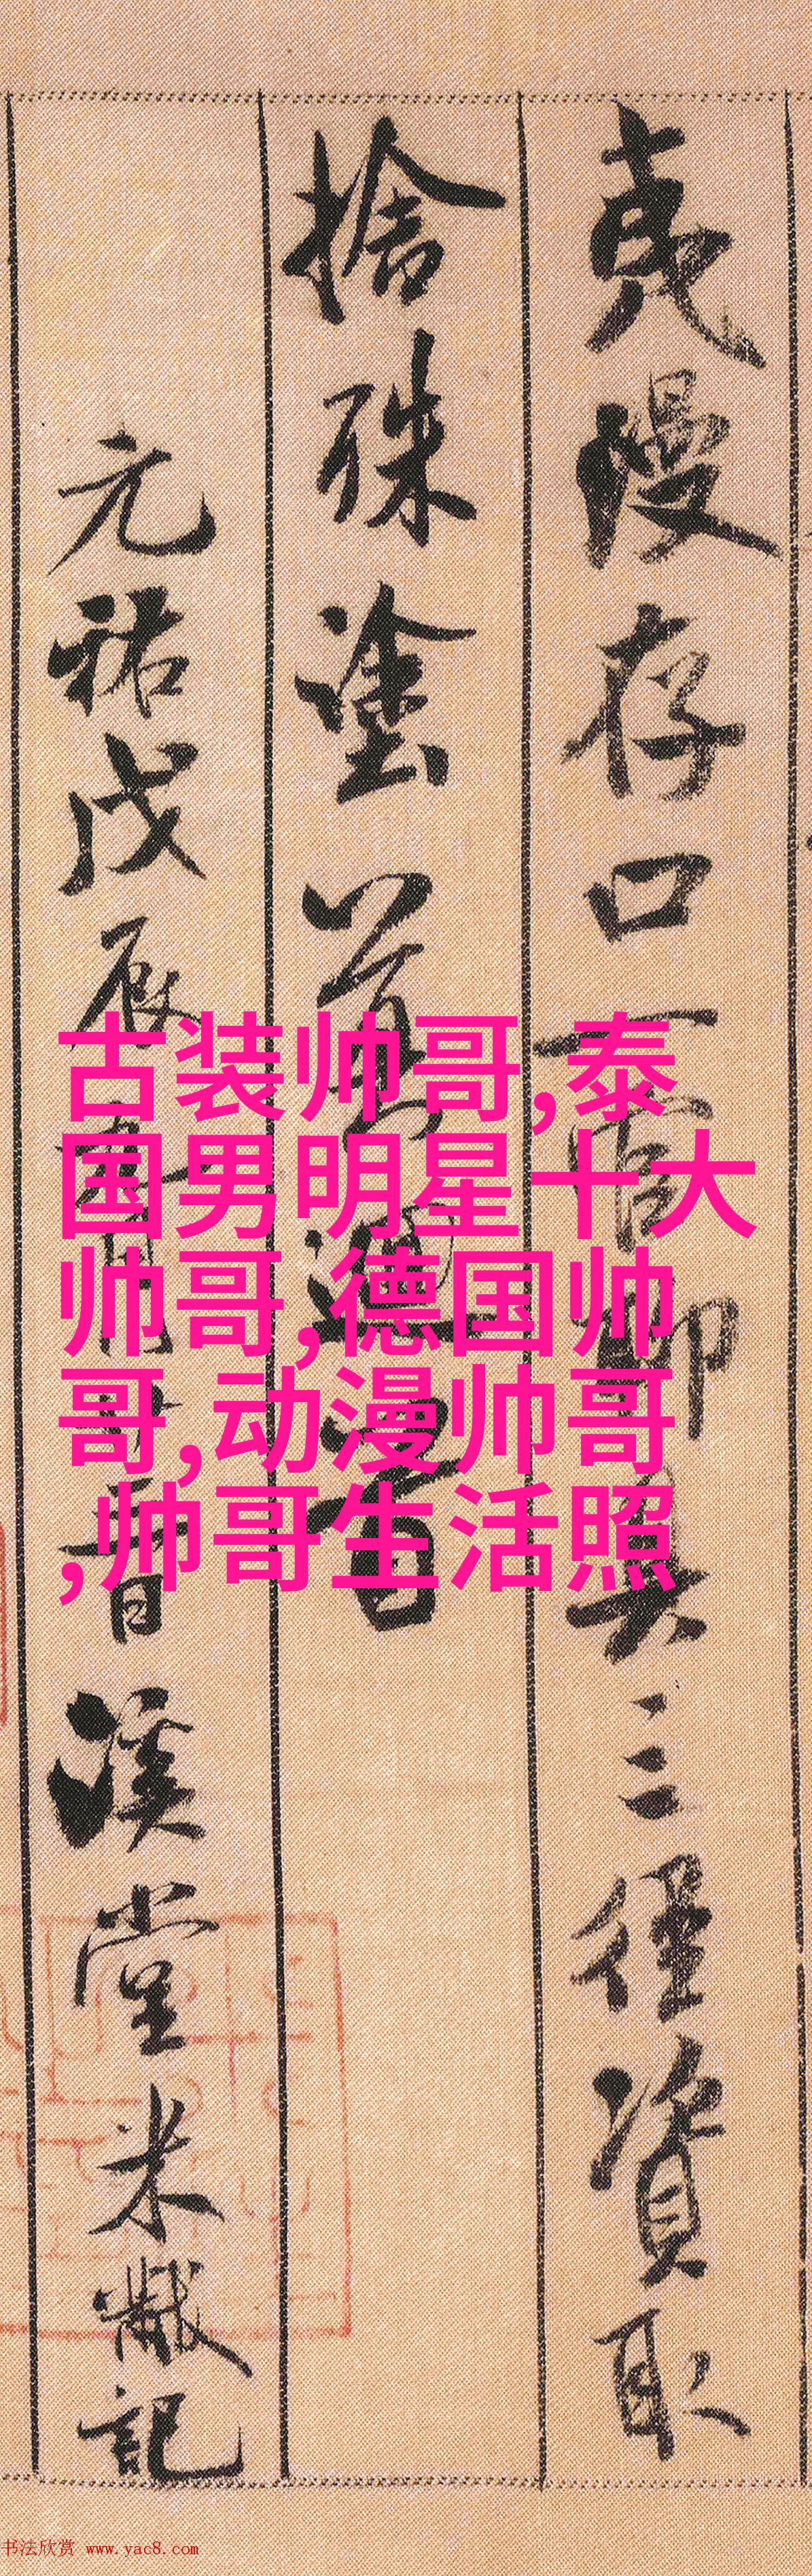 夷漫存口一官聊具三徑資取
捨殊塗
元祐戊辰九月廿三日溪堂米黻記
古装帅哥,泰
国男明星十大
帅哥,德国帅
哥,动漫帅哥
,帅哥生活照
书法欣赏 www.yac8.com